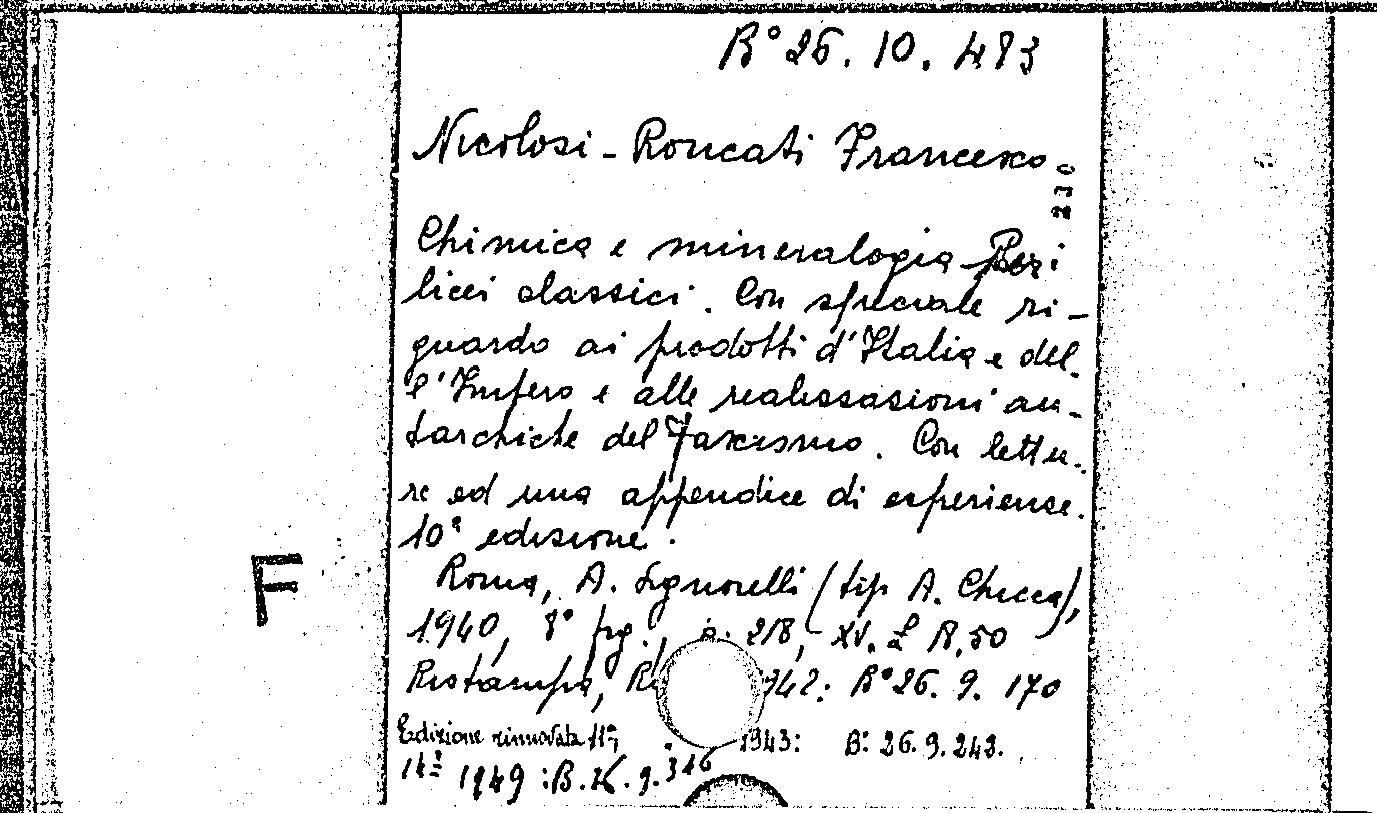 B° 26. 10. 483
Nicolosi - Roncati Francesco.
230
Chimica e mineralogia Per i
licei classici. Con speciale ri-
guardo ai prodotti d'Italia e del-
l'Impero e alle realizzazioni au-
tarchiche del Fascismo. Con lettu-
re ed una appendice di esperienze.
10ª edizione.
F
Roma, A. Signorelli (tip A. Checca),
1940, 8° fig., p. 218, XV. £
Ristampa, 942: B° 26. 9. 170
Edizione rinnovata 11ª, 1943: B: 26.9.243.
1949: B. 26. 9. 316